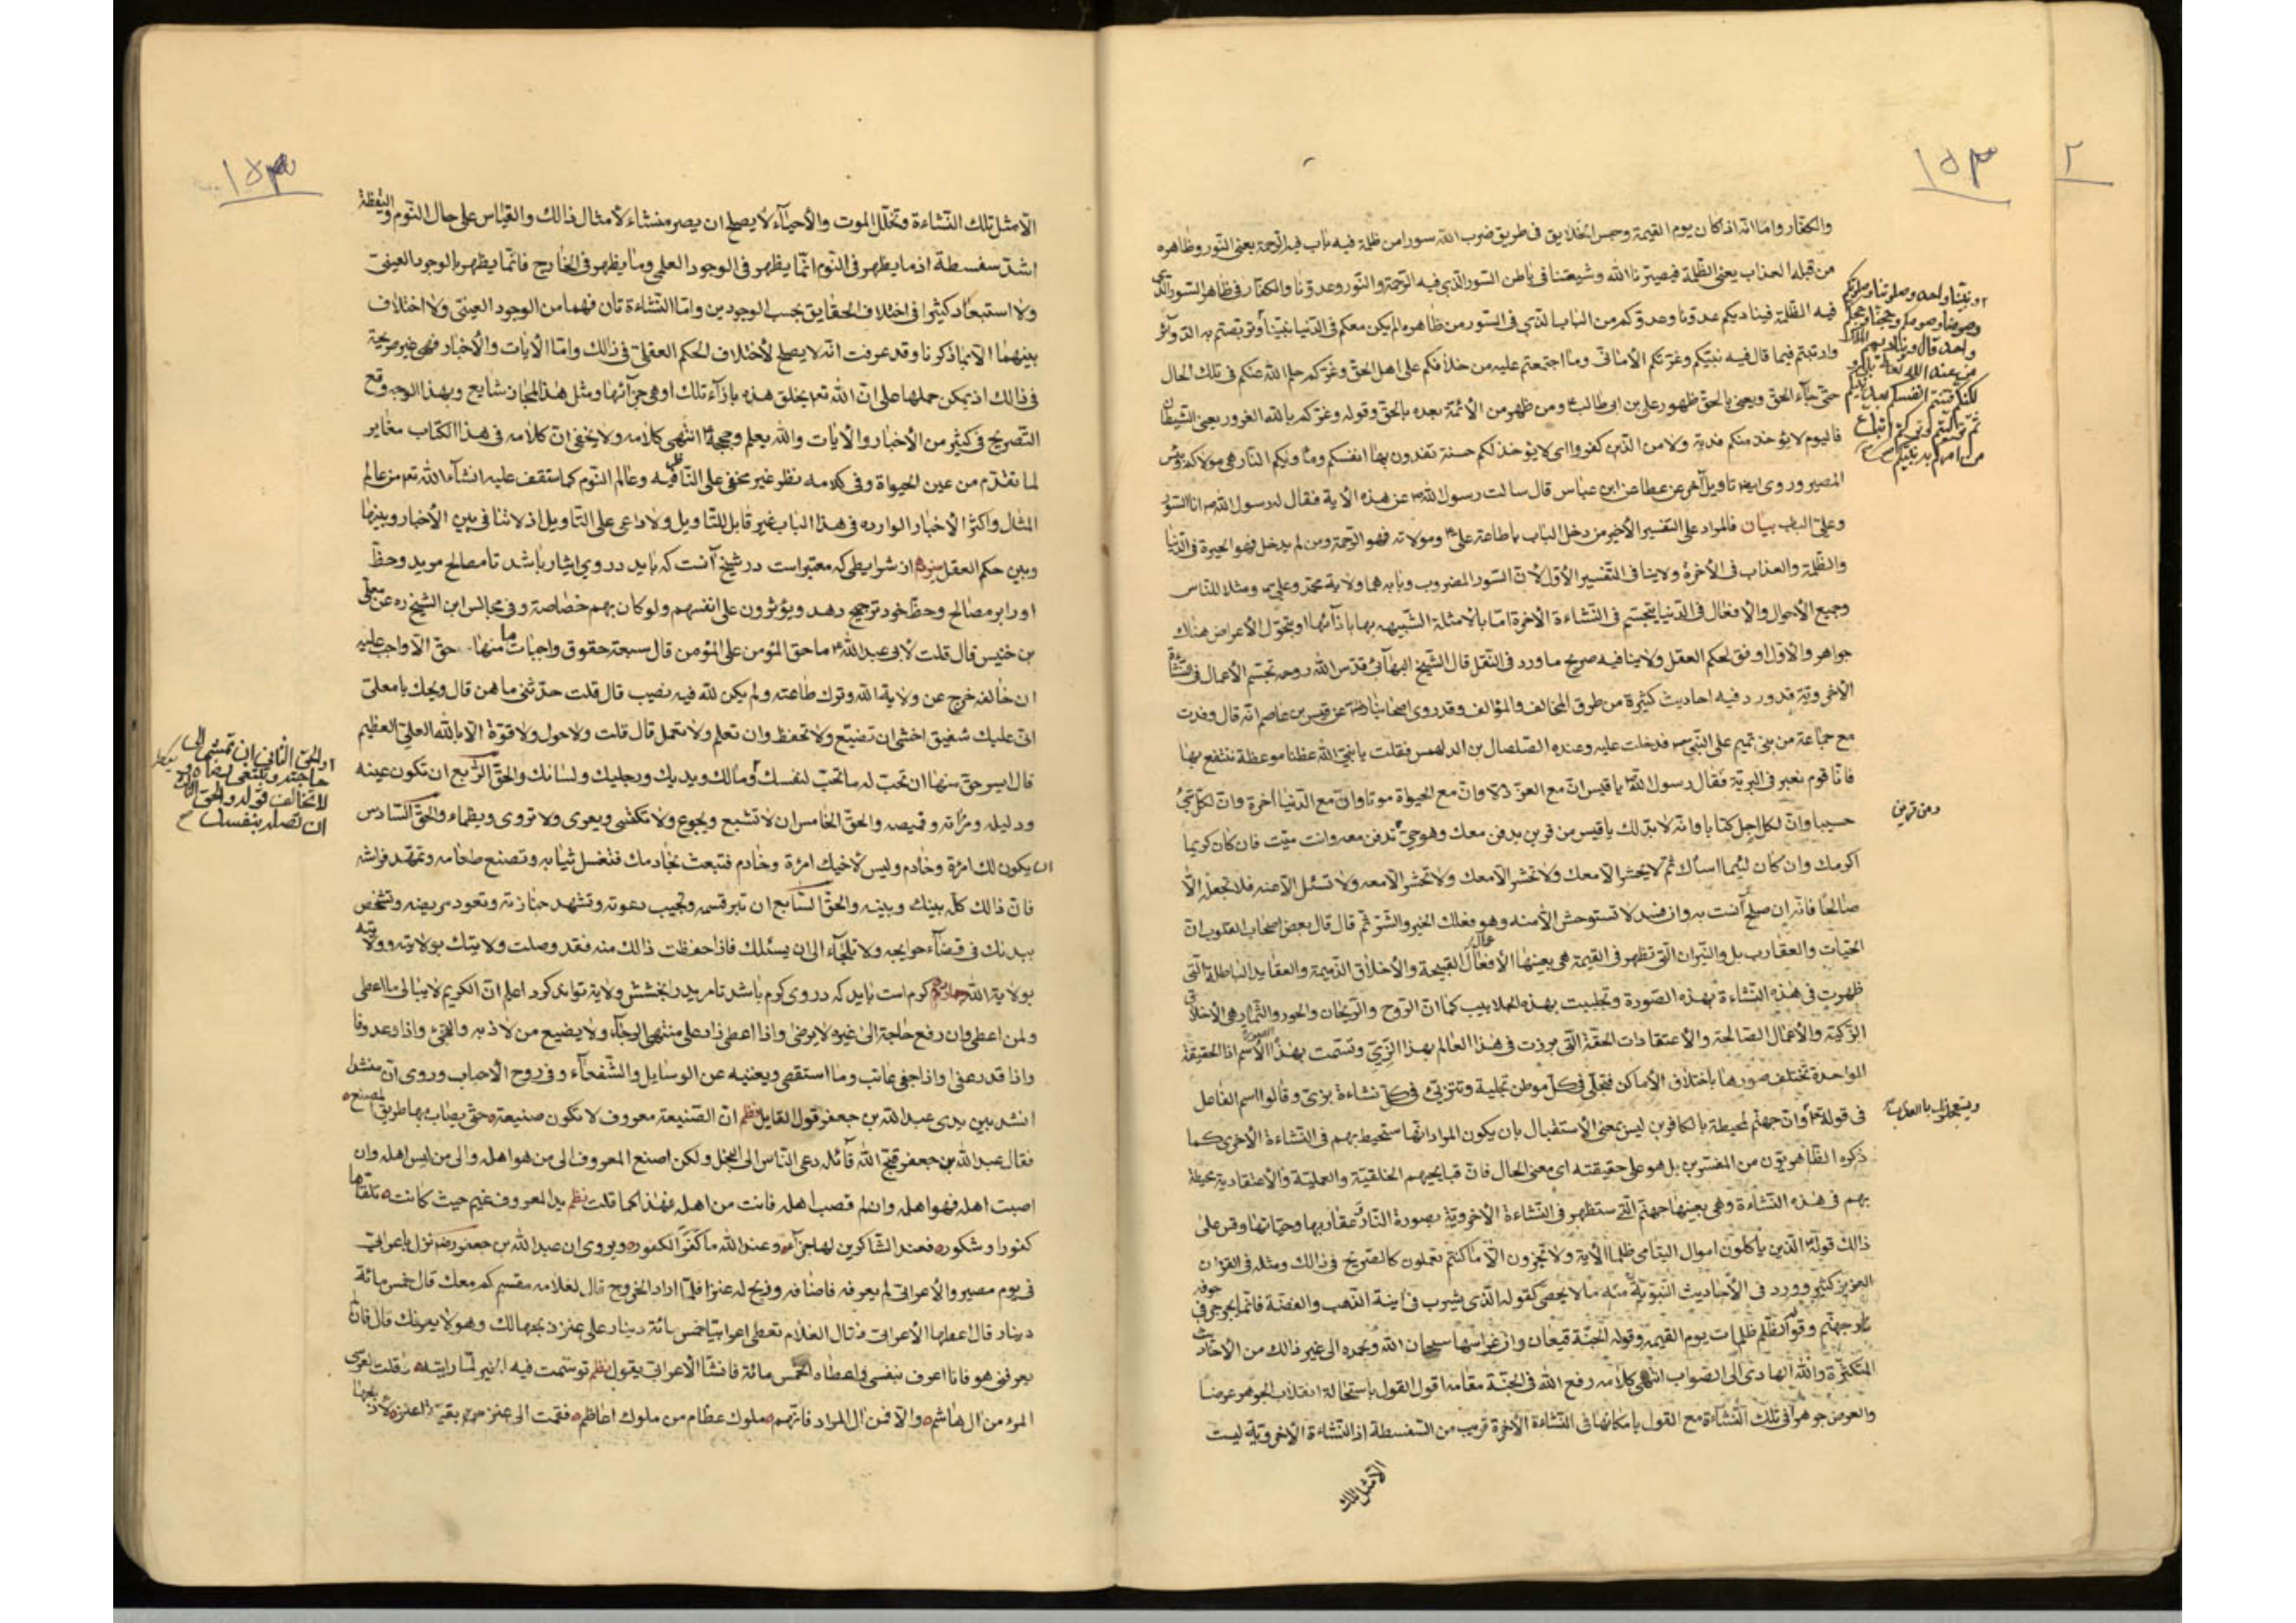 ١٥٣
٢
والكفّار وامّا انّه اذ كان يوم القيمة وحبس الخلايق فى طريق ضرب الله سورا من ظلمة فيه باب فيه الرّحمة يعنى النّور وظاهره
من قبله العذاب يعنى الظّلمة فيصيّرنا الله وشيعتنا فى باطن السّور الّذى فيه الرّحمة والنّور وعدوّنا والكفّار فى ظاهر السّور الّذى
فيه الظّلمة فيناديكم عدوّنا وعدوّكم من الباب الّذى فى السّور من ظاهره الم يكن معكم فى الدّنيا نبيّنا
ونبيّكم واحد وصلوتنا وصلوتكم
وصومنا وصومكم وحجّنا وحجّكم
واحد قال فيناديهم الملك
من عند الله تعالى بلى
لكنّكم فتنتم انفسكم بعد نبيّكم
ثمّ تولّيتم وتركتم اتباع
من امركم به نبيّكم
وتربّصتم به الدّوائر
وارتبتم فيما قال فيه نبيّكم وغرّتكم الأمانى وما اجتمعتم عليه من خلافكم على اهل الحقّ وغرّكم حلم الله عنكم فى تلك الحال
حتّى جآء الحقّ ويعنى بالحقّ ظهور علىّ بن ابى طالب ع ومن ظهر من الأئمّة بعده بالحقّ وقوله وغرّكم بالله الغرور يعنى الشّيطان
فاليوم لا يؤخذ منكم فدية ولا من الّذين كفروا اى لا يؤخذ لكم حسنة تفدون بها انفسكم ومأويكم النّار هى موليكم وبئس
المصير وروى ايضا تاويل آخر عن عطا عن ابن عبّاس قال سالت رسول الله ص عن هذه الآية فقال رسول الله ص انا السّور
وعلىّ الباب بيان فالمراد على التّفسير الأخير من دخل الباب باطاعة علىّ ع ومولاته فهو الرّحمة ومن لم يدخل فهو الحيرة فى الدّنيا
والظّلمة والعذاب فى الآخرة ولا ينافى التّفسير الأوّل لأنّ السّور المضروب وبابه هما ولاية محمّد وعلىّ ع ومثلا للنّاس
وجميع الأحوال والأفعال فى الدّنيا يتجسّم فى النّشاءة الآخرة امّا بالأمثلة الشّبيهه بها بازآئها او بتحوّل الأعراض هناك
جواهر والأوّل اوفق لحكم العقل ولا ينافيه صريح ما ورد فى النّقل قال الشّيخ البهآئى قدّس الله روحه تجسّم الأعمال فى النّشاءة
الأخرويّة قد ورد فيه احاديث كثيرة من طرق المخالف والمؤالف وقد روى اصحابنا رض عن قيس بن عاصم انّه قال وفدت
مع جماعة من بنى تميم على النّبىّ ص فدخلت عليه وعنده الصّلصال بن الدلهمس فقلت يا نبىّ الله عظنا موعظة ننتفع بها
فانّا قوم نعبر فى البريّة فقال رسول الله ص يا قيس انّ مع العزّ ذلّا وانّ مع الحيوة موتا وانّ مع الدّنيا آخرة وانّ لكلّ شئ
حسيبا وانّ لكلّ اجل كتابا وانّه لا بدّ لك يا قيس من قرين يدفن معك وهو حىّ وتدفن معه وانت ميّت فان كان كريما
اكرمك وان كان لئيما اسآءك ثمّ لا يحشر الّا معك ولا تحشر الّا معه ولا تسئل الّا عنه فلا تجعله الّا
صالحا فانّه ان صلح آنست به وان فسد لا تستوحش الّا منه وهو فعلك الخير والشّرّ ثمّ قال قال بعض اصحاب القلوب انّ
الحيّات والعقارب بل والنّيران الّتى تظهر فى القيمة هى بعينها الأفعال القبيحة والأخلاق الذّميمة والعقايد الباطلة الّتى
ظهرت فى هذه النّشاءة بهذه الصّورة وتجلببت بهذه الجلابيب كما انّ الرّوح والرّيحان والحور والثّمار هى الأخلاق
الزّكيّة والأعمال الصّالحة والأعتقادات الحقّة الّتى برزت فى هذا العالم بهذا الزّىّ وتسمّت بهذا الأسم اذ الحقيقة
الواحدة تختلف صورها باختلاف الأماكن فتحلّى فى كلّ موطن بحلية وتتزيّى فى كلّ نشاءة بزىّ وقالوا اسم الفاعل
ويستعجلونك بالعذاب
فى قوله تعالى وانّ جهنّم لمحيطة بالكافرين ليس بمعنى الأستقبال بان يكون المراد انّها ستحيط بهم فى النّشاءة الأخرى كما
ذكره الظّاهريّون من المفسّرين بل هو على حقيقته اى معنى الحال فانّ قبايحهم الخلقيّة والعمليّة والأعتقادية محيطة
بهم فى هذه النّشاءة وهى بعينها جهنّم الّتى ستظهر فى النّشاءة الأخرويّة بصورة النّار وعقاربها وحيّاتها وقس على
ذالك قوله تع الّذين يأكلون اموال اليتامى ظلما الآية ولا تجزون الّا ما كنتم تعملون كالصّريح فى ذالك ومثله فى القرآن
العزيز كثير وورد فى الأحاديث النّبويّة منه ما لا يحصى كقوله الّذى يشرب فى آنية الذّهب والفضّة فانّما يجرجر فى جوفه
نار جهنّم وقوله الظّلم ظلمات يوم القيمة وقوله الجنّة قيعان وانّ غراسها سبحان الله وبحمده الى غير ذالك من الأحاديث
المتكثّرة والله الهادى الى الصّواب انتهى كلامه رفع الله فى الجنّة مقامه اقول القول باستحالة انقلاب الجوهر عرضا
والعرض جوهرا فى تلك النّشاءة مع القول بامكانها فى النّشاءة الآخرة قريب من السّفسطة اذ النّشاءة الأخرويّة ليست
الّا مثل تلك
١٥٣
الّا مثل تلك النّشاءة وتخلّل الموت والأحيآء لا يصلح ان يصير منشاء لأمثال ذالك والقياس على حال النّوم واليقظة
اشدّ سفسطة اذ ما يظهر فى النّوم انّما يظهر فى الوجود العلمى وما يظهر فى الخارج فانّما يظهر بالوجود العينىّ
ولا استبعاد كثيرا فى اختلاف الحقايق بحسب الوجودين وامّا النّشاءتان فهما من الوجود العينىّ ولا اختلاف
بينهما الّا بما ذكرنا وقد عرفت انّه لا يصلح لأختلاف الحكم العقلىّ فى ذالك وامّا الآيات والأخبار فهى غير صريحة
فى ذالك اذ يمكن حملها على انّ الله تع يخلق هذه بازآء تلك او هى جزآئها ومثل هذا المجاز شايع وبهذا الوجه وقع
التصريح فى كثير من الأخبار والآيات والله يعلم وحججه ع انتهى كلامه ولا يخفى انّ كلامه فى هذا الكتاب مغاير
لما تقدّم من عين الحيوة وفى كلامه نظر غير مخفى على النّاظر فيه وعالم النّوم كما ستقف عليه انشآء الله تع من عالم
المثال واكثر الأخبار الوارده فى هذا الباب غير قابل للتّاويل ولا داعى على التّاويل اذ لا تنافى بين الأخبار وبينها
وبين حكم العقل از شرايطى كه معتبر است در شيخ آنست كه بايد در وى ايثار باشد تا مصالح مريد وحظّ
او را بر مصالح وحظّ خود ترجيح دهد ويؤثرون على انفسهم ولو كان بهم خصاصة وفى مجالس ابن الشيخ ره عن معلّى
بن خنيس قال قلت لأبى عبد الله ع ما حق المؤمن على المؤمن قال سبعة حقوق واجبات ما منها حقّ الّا واجب عليه
ان خالفه خرج عن ولاية الله وترك طاعته ولم يكن لله فيه نصيب قال قلت حدّثنى ما هن قال ويحك يا معلّى
انّى عليك شفيق اخشى ان تضيّع ولا تحفظ وان تعلم ولا تعمل قال قلت ولا حول ولا قوّة الّا بالله العلىّ العظيم
قال ايسر حقّ منها ان تحب له ما تحبّ لنفسك
والحقّ الثّانى ان تمشى فى
حاجته وتبتغى رضاه و
لا تخالف قوله والحقّ الثّالث
ان تصله بنفسك
ومالك ويديك ورجليك ولسانك والحقّ الرّابع ان تكون عينه
ودليله ومرآته وقميصه والحقّ الخامس ان لا تشبع ويجوع ولا تكتسى ويعرى ولا تروى ويظماء والحقّ السّادس
ان يكون لك امرئة وخادم وليس لأخيك امرئة وخادم فتبعث بخادمك فتغسل ثيابه وتصنع طعامه وتمهّد فراشه
فانّ ذالك كلّه بينك وبينه والحقّ السّابع ان تبرّ قسمه وتجيب دعوته وتشهد جنازته وتعود مريضه وتشخص
ببدنك فى قضآء حوايجه ولا تلجآء الى ان يسئلك فاذا حفظت ذالك منه فقد وصلت ولايتك بولايته وولايته
بولاية الله كرم است بايد كه در وى كرم باشد تا مريد را بخشش ولاية تواند كرد اعلم انّ الكريم لا يبالى ما اعطى
ولمن اعطى وان رفع حاجة الى غيره لا يرضى واذا اعطى زاد على منتهى الرجآء ولا يضيع من لاذ به والتجئ واذا وعد وفا
واذا قدر عفى واذا جفى عاتب وما استقصى ويغنيه عن الوسايل والشّفعآء وفى روح الأحباب وروى انّ منشدا
انشد بين يدى عبد الله بن جعفر قول القايل نظم انّ الصّنيعة معروف لا تكون صنيعة حتّى يصاب بها طريق المصنع
فقال عبد الله بن جعفر قبّح الله قآئله دعى النّاس الى البخل ولكن اصنع المعروف الى من هو اهله والى من ليس اهله وان
اصبت اهله فهو اهله وان لم تصب اهله فانت من اهله فهذا كما قلت نظم يد المعروف غنم حيث كانت تلقّاها
كفور او شكور فعند الشّاكرين لها جزآء وعند الله ما كفر الكفور ويروى ان عبد الله بن جعفر رضه نزل باعرابىّ
فى يوم مصير والأعرابى لم يعرفه فاضافه وذبح له عنزا فلمّا اراد الخروج قال لغلامه مقسم كم معك قال خمس مائة
دينار قال اعطها الأعرابى فقال الغلام تعطى اعرابيّا خمس مائة دينار على عنز ذبحها لك وهو لا يعرفك قال فان لم
يعرفنى هو فانا اعرف نفسى فاعطاه الخمس مائة فانشأ الأعرابى يقول نظم توسّمت فيه الخير لمّا رايته وقلت لعرسى
المرء من ال هاشم والّا فمن ال المراد فانّهم ملوك عظام من ملوك اعاظم فقمت الى عنز بقيّة اعنز لأذبحها